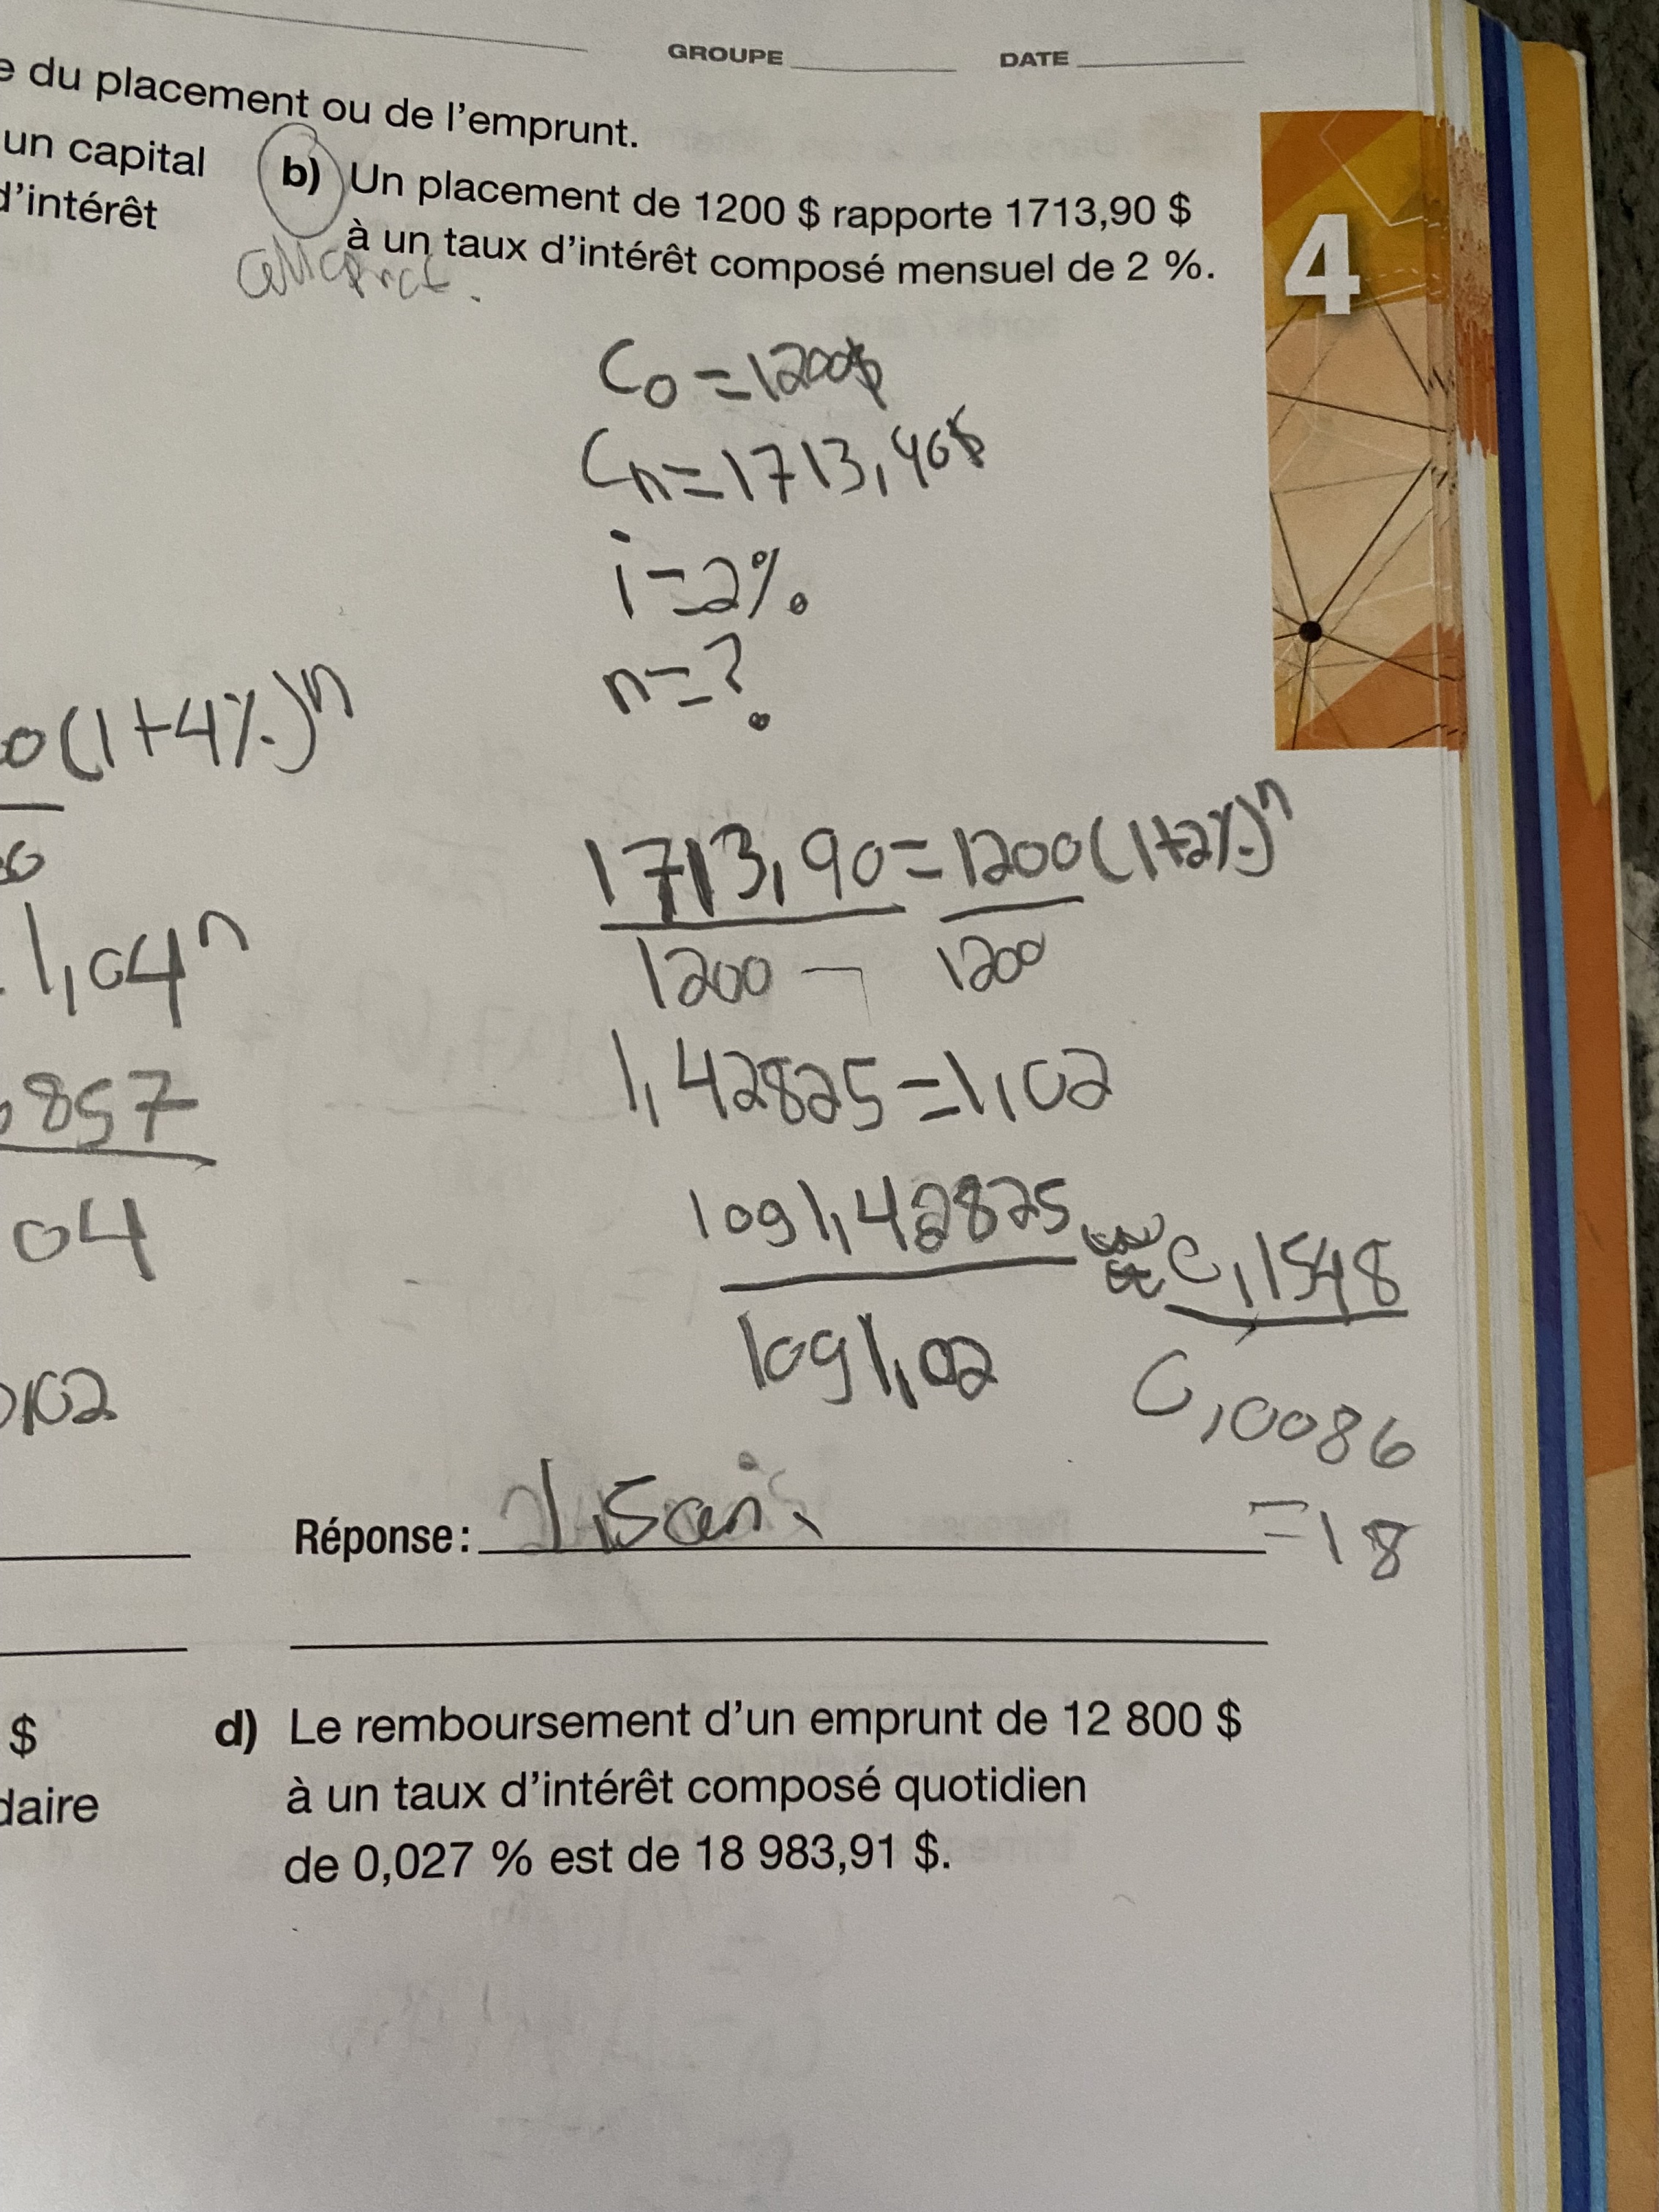 GROUPE DATE
e du placement ou de l'emprunt.
un capital
d'intérêt
b) Un placement de 1200 $ rapporte 1713,90 $
à un taux d'intérêt composé mensuel de 2 %.
4
C0 = 1200$
Cn = 1713,90$
i = 2%
n = ?
0(1+4%)^n
1713,90 = 1200(1+2%)^n
1200 1200
1,04^n
1,42825 = 1,02
857
log 1,42825 0,1548
04
log 1,02 0,0086
102
= 18
Réponse : 1,5 an
$
daire
d) Le remboursement d'un emprunt de 12 800 $
à un taux d'intérêt composé quotidien
de 0,027 % est de 18 983,91 $.